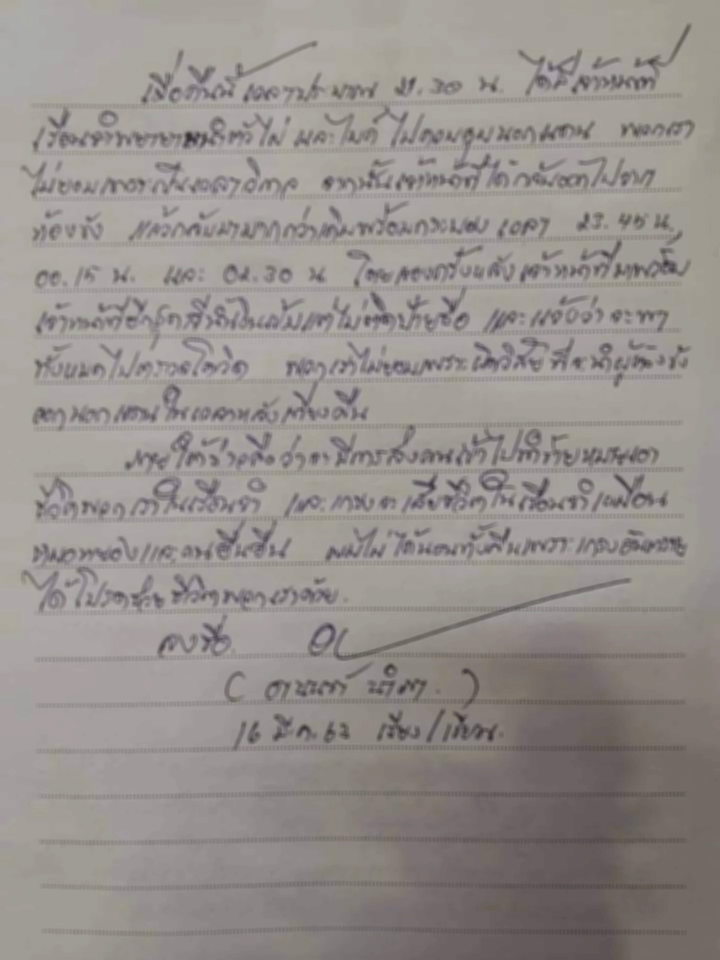 เมื่อคืนนี้ เวลาประมาณ 21.30 น. ได้มีเจ้าหน้าที่
เรือนจำพยายามนำตัวไผ่ และไมค์ ไปควบคุมนอกแดน พวกเรา
ไม่ยอมเพราะเป็นเวลาวิกาล จากนั้นเจ้าหน้าที่ได้กลับออกไปจาก
ห้องขัง แล้วกลับมามากกว่าเดิมพร้อมกระบอง เวลา 23.45 น.
00.15 น. และ 02.30 น โดยสองครั้งหลังเจ้าหน้าที่มาพร้อม
เจ้าหน้าที่อีกชุดสีน้ำเงินเข้มแต่ไม่ติดป้ายชื่อ และแจ้งว่าจะพา
ทั้งหมดไปตรวจโควิด พวกเราไม่ยอมเพราะผิดวิสัยที่จะนำผู้ต้องขัง
ออกนอกแดนในเวลาหลังเที่ยงคืน
ภายใต้ข่าวลือว่าจะมีการส่งคนเข้าไปทำร้ายหมายเอา
ชีวิตพวกเราในเรือนจำ และเกรงจะเสียชีวิตในเรือนจำเหมือน
หมอหยองและคนอื่นอื่น ผมไม่ได้นอนทั้งคืนเพราะเกรงอันตราย
ได้โปรดช่วยชีวิตพวกเราด้วย.
ลงชื่อ
( อานนท์ นำภา. )
16 มี.ค. 64 เรียง/เขียน.